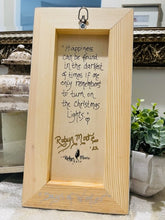 "Happiness
can be found
in the darkest
of times if one
only remembers
to turn on
the Christmas
Lights"
Robyn Moore
"Robyn Moore